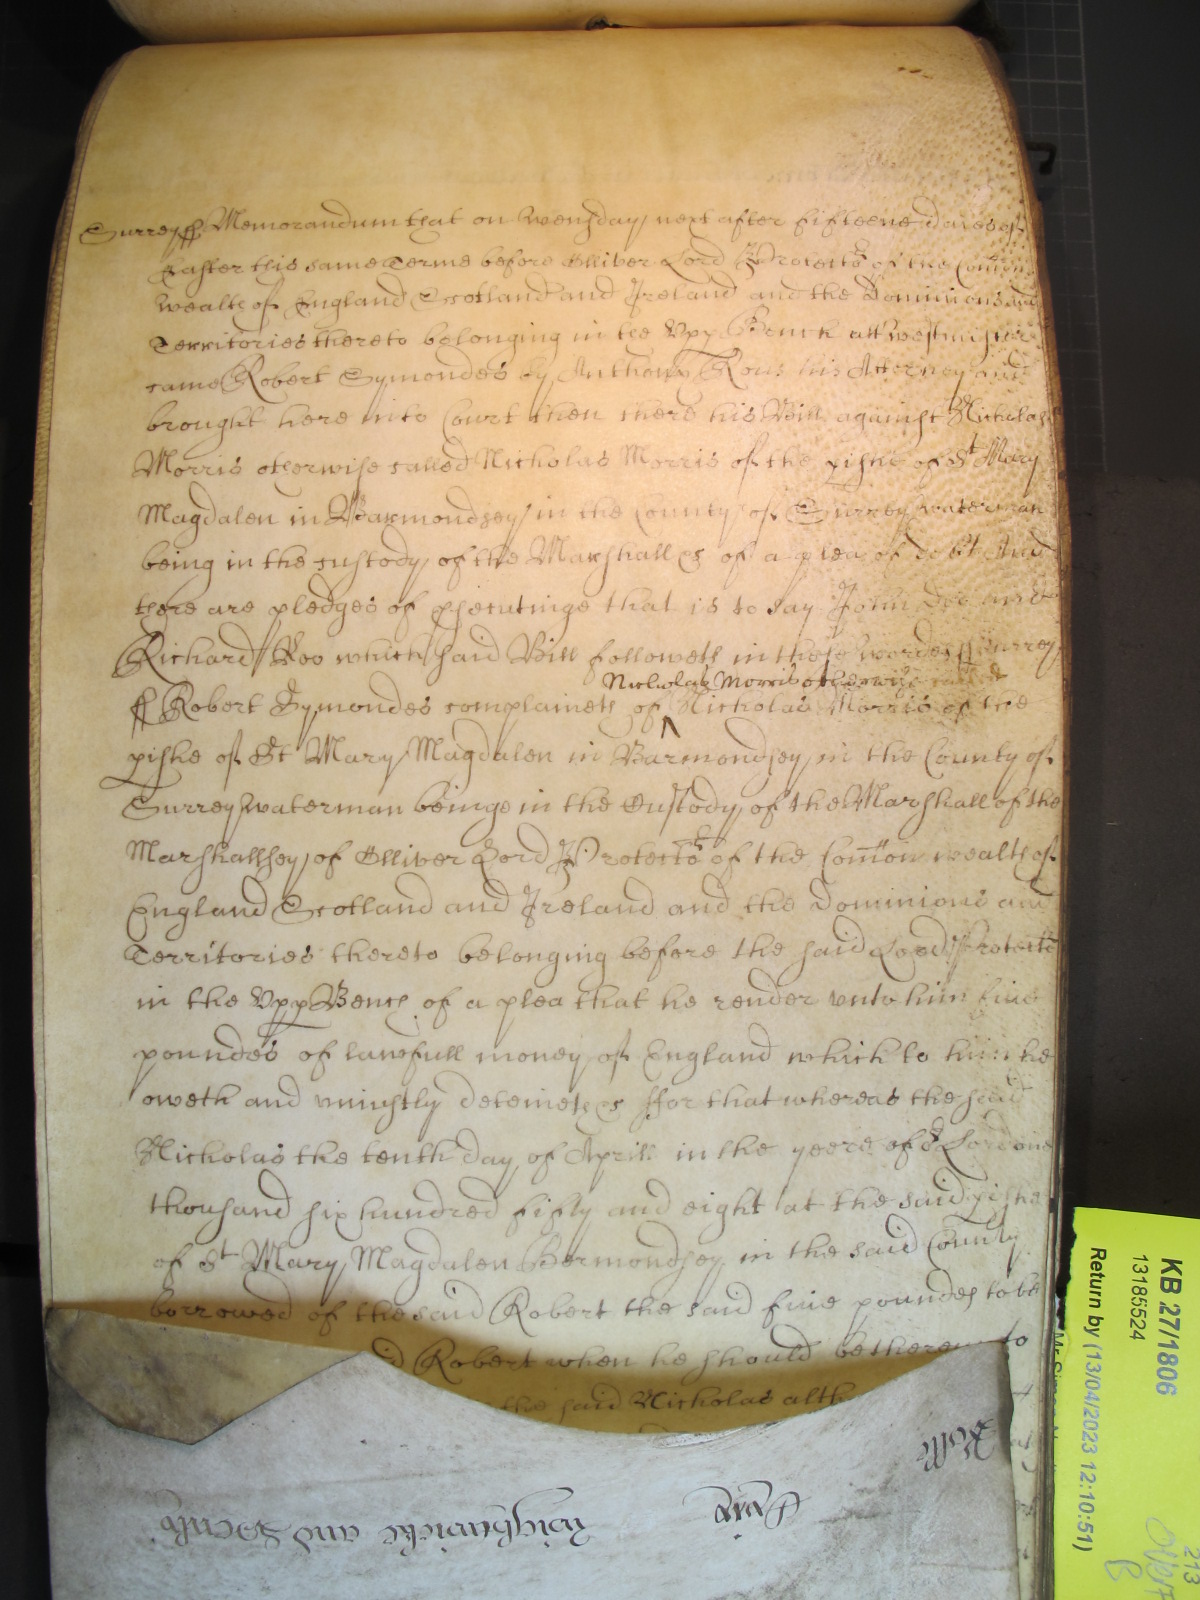 Surrey ss Memorandum that on Wensday next after fifteene daies of
Easter this same Terme before Olliver Lord Protector of the Comon
wealth of England Scotland and Ireland and the Dominions and
Territories thereto belonging in the Upp Bench att Westminster
came Robert Symondes by Anthony Rous his Atterney and
brought here into Court then there his Bill against Nicholas
Morris otherwise called Nicholas Morris of the pishe of St Mary
Magdalen in Barmondsey in the County of Surrey waterman
being in the custody of the Marshall &c of a plea of debt And
there are pledges of psecutinge that is to say John Doe and
Richard Roo which said Bill followeth in these wordes ss Surrey
Nicholas Morris otherwise called
ss Robert Symondes complaineth of Nicholas Morris of the
pishe of St Mary Magdalen in Barmondsey in the County of
Surrey waterman beinge in the Custody of the Marshall of the
Marshallsey of Olliver Lord Protector of the Comon wealth of
England Scotland and Ireland and the Dominions and
Territories thereto belonging before the said Lord Protector
in the Upp Bench of a plea that he render unto him five
poundes of lawfull money of England which to him he
oweth and uniustly deteineth &c ffor that whereas the said
Nicholas the tenth day of Aprill in the yeere of or Lord one
thousand six hundred fifty and eight at the said pishe
of St Mary Magdalen Bermondsey in the said County
borrowed of the said Robert the said five poundes to be
Robert when he should be thereunto
the said Nicholas alth
Rolle
wightwicke and
KB 27/1806
13185524
Return by (13/04/2023 12:10:51)
213